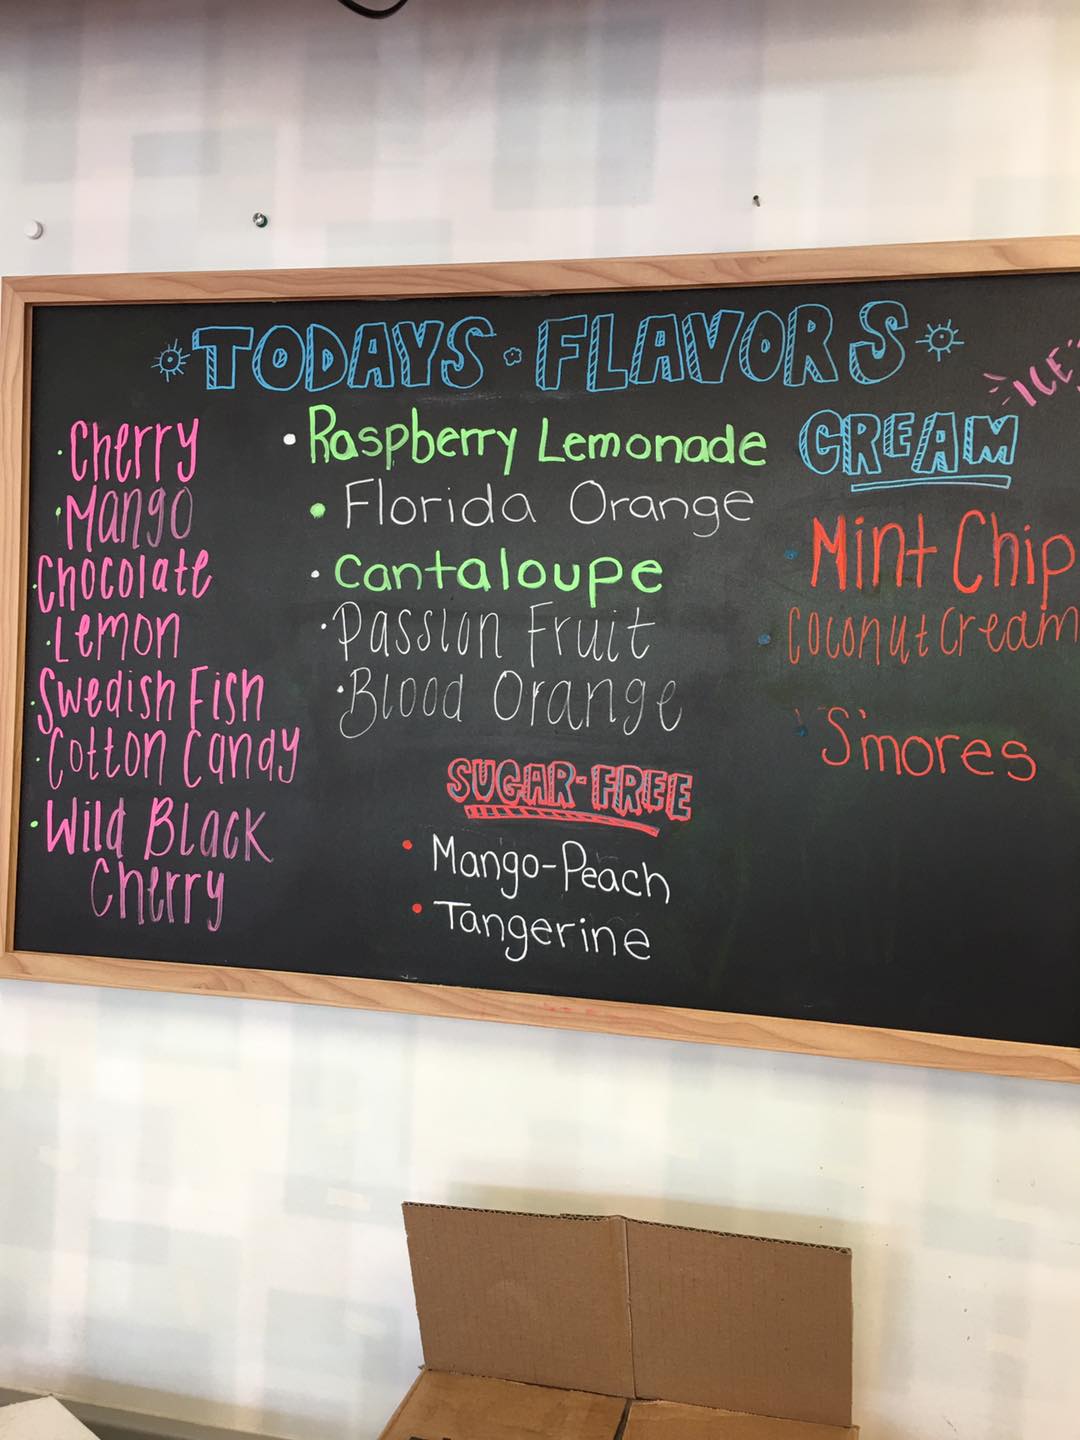 TODAYS FLAVORS
Cherry
Mango
Chocolate
Lemon
Swedish Fish
Cotton Candy
Wild Black
Cherry
Raspberry Lemonade
Florida Orange
Cantaloupe
Passion Fruit
Blood Orange
SUGAR-FREE
Mango-Peach
Tangerine
ICE
CREAM
Mint Chip
Coconut Cream
S'mores